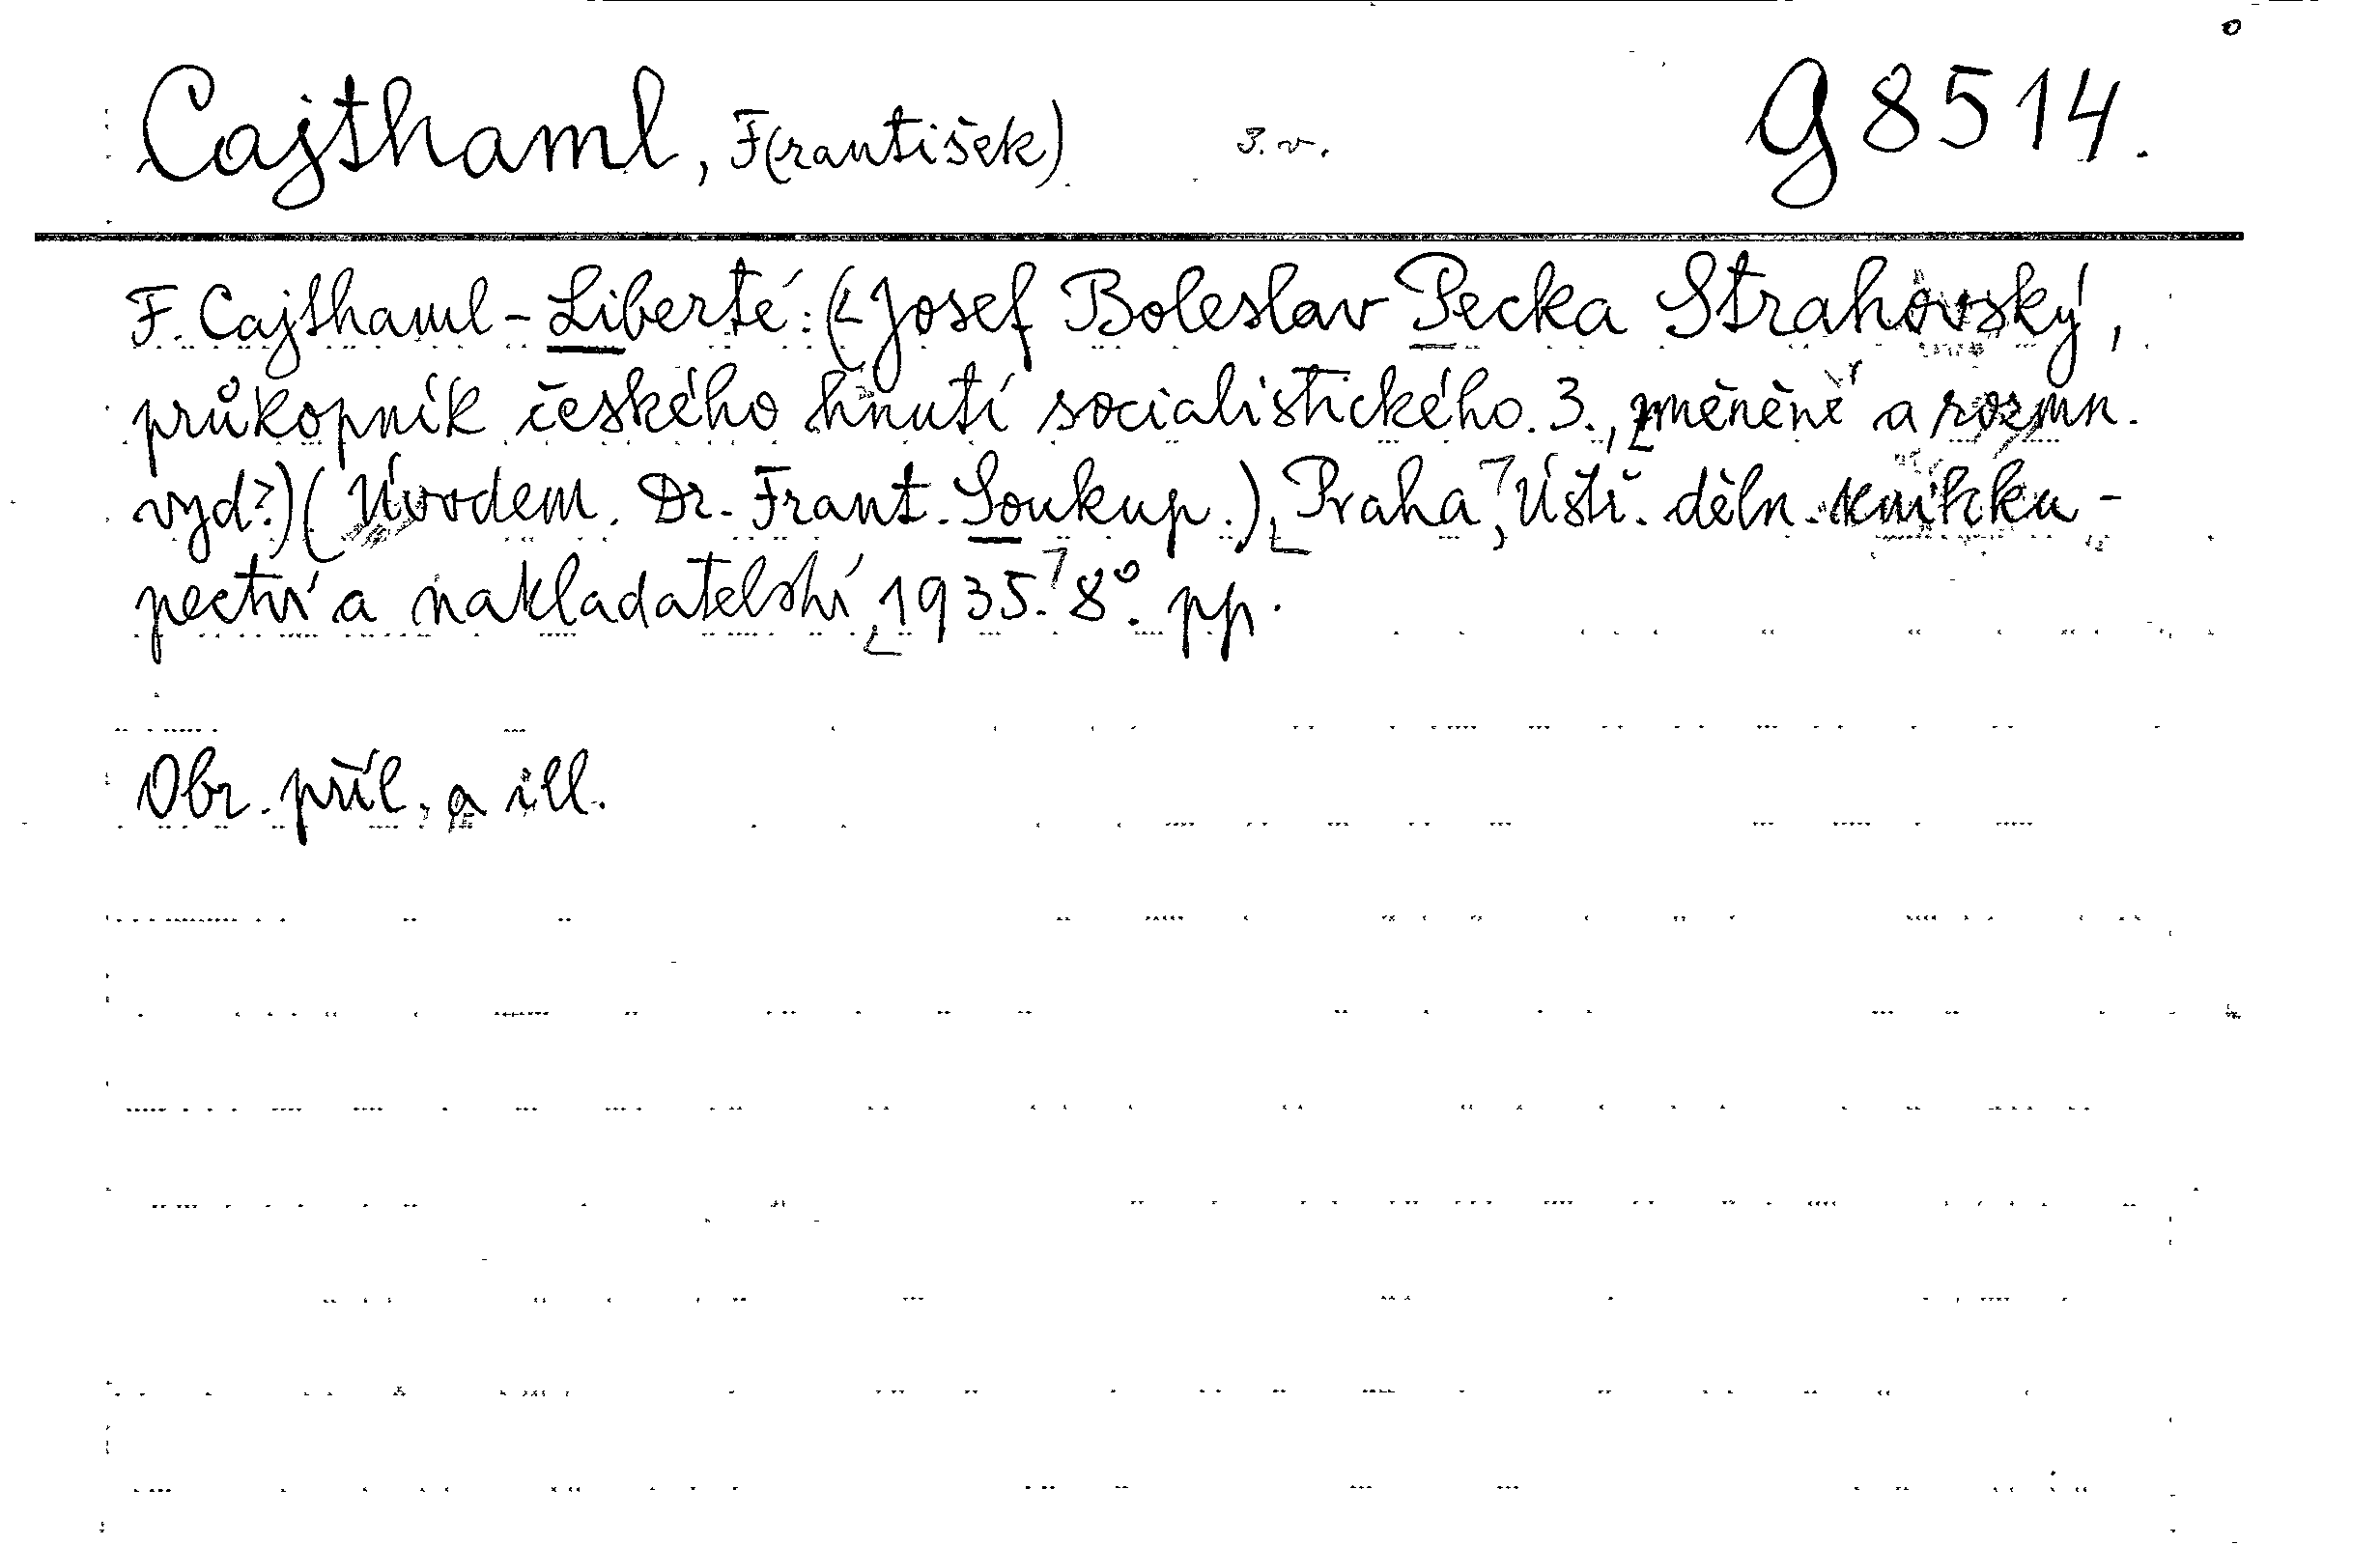 Cajthaml, F(rantišek) 3. v. G 8514.
F. Cajthaml - Liberté: (Josef Boleslav Pecka Strahovský,
průkopník českého hnutí socialistického. 3., změněné a rozmn.
vyd.) (Úvodem. Dr. Frant. Soukup.), Praha, Ústř. děln. knihku-
pectví a nakladatelství, 1935. 8°. pp.
Obr. příl. a ill.